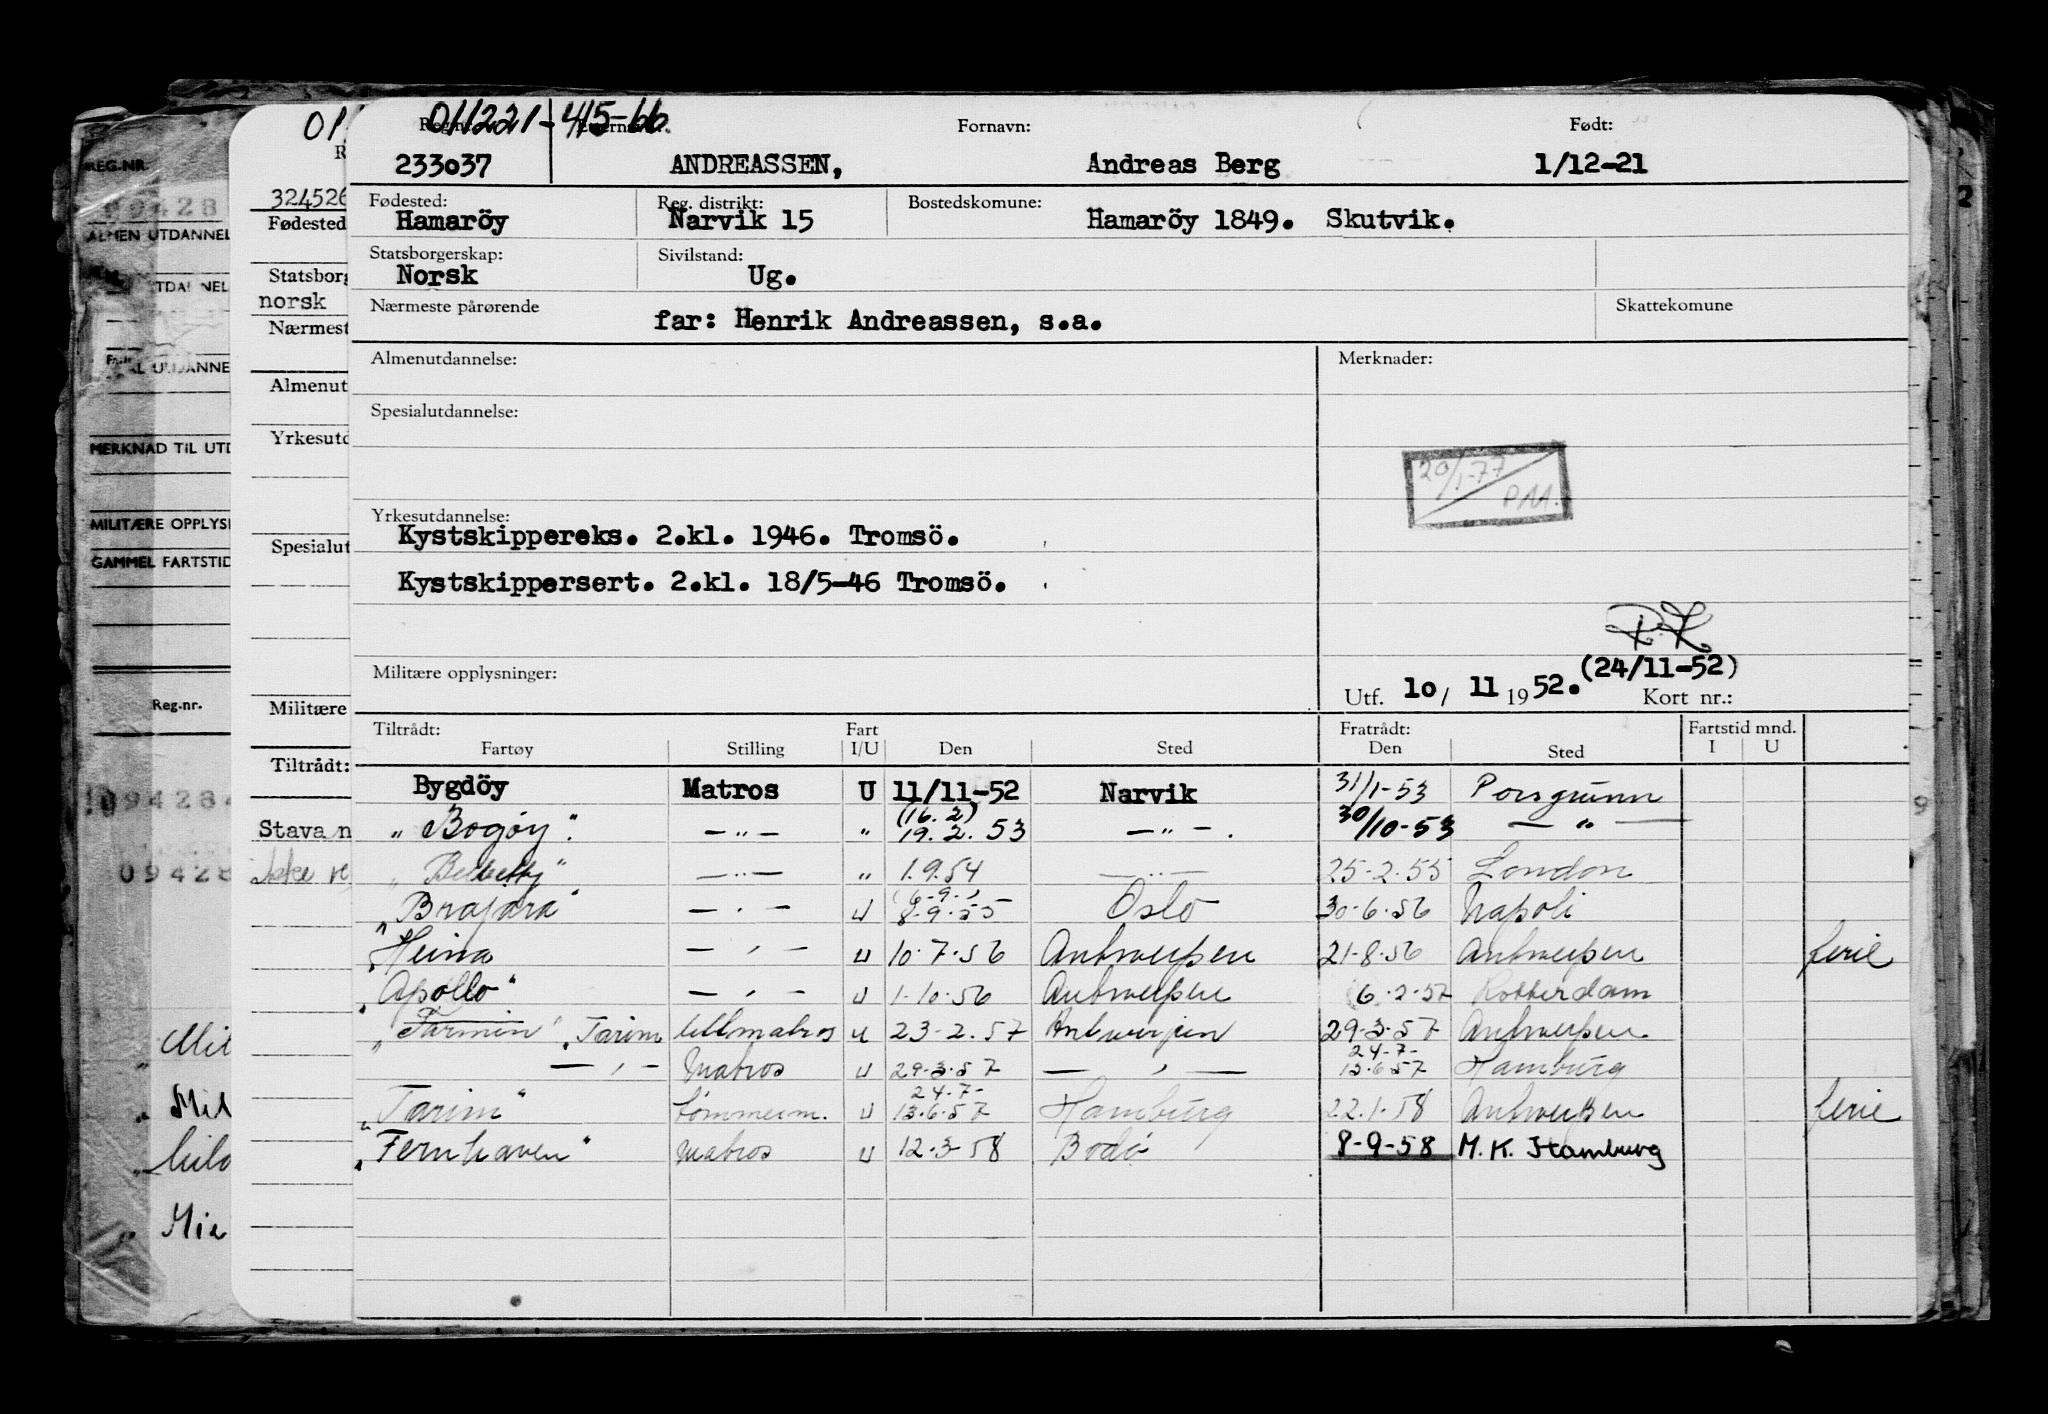 011221-415-66
Reg.nr. Etternavn: Fornavn: Født:
233037 ANDREASSEN, Andreas Berg 1/12-21
Fødested: Reg. distrikt: Bostedskomune:
Hamaröy Narvik 15 Hamaröy 1849. Skutvik.
Statsborgerskap: Sivilstand:
Norsk Ug.
Nærmeste pårørende Skattekomune
far: Henrik Andreassen, s.a.
Almenutdannelse: Merknader:
Spesialutdannelse:
20/1-77
Yrkesutdannelse:
Kystskippereks. 2.kl. 1946. Tromsö.
Kystskippersert. 2.kl. 18/5-46 Tromsö.
(24/11-52)
Militære opplysninger: Utf. 10/ 11 1952. Kort nr.:
Tiltrådt: Fart Fratrådt: Fartstid mnd.
Fartøy Stilling I/U Den Sted Den Sted I U
Bygdöy Matros U 11/11-52 Narvik 31/1-53 Porsgrunn
(16.2)
"Bogöy". —"— " 19.2.53 —"—. 30/10-53 —"—
" —"— " 1.9.54 —"— 25-2-55 London
(6-9-)
"Brajara" —"— U 8-9-55 Oslo 30-6-56 Napoli
"Heina —"— U 10-7-56 Antwerpen 21-8-56 Antwerpen ferie
"Apollo" —"— U 1-10-56 Antwerpen 6-2-57 Rotterdam
"Tarmin" "Tarim lettmatros U 23-2-57 Antwerpen 29-3-57 Antwerpen
24-7-
—"— Matros U 29-3-57 —"— 13-6-57 Hamburg
24-7-
"Tarim" tømmerm. U 13-6-57 Hamburg 22-1-58 Antwerpen ferie
"Fernhaven" Matros U 12-3-58 Bodö 8-9-58 M.K. Hamburg
01
R
324526
Fødested
Statsborg
norsk
Nærmest
Almenut
Yrkesutd
Spesialut
Militære
Tiltrådt:
Stavan
Ikke
REG.NR.
09428
ALMEN UTDANNEL
MERKNAD TIL UTD
MILITÆRE OPPLYS
GAMMEL FARTSTID
Reg.-nr.
094284
09428